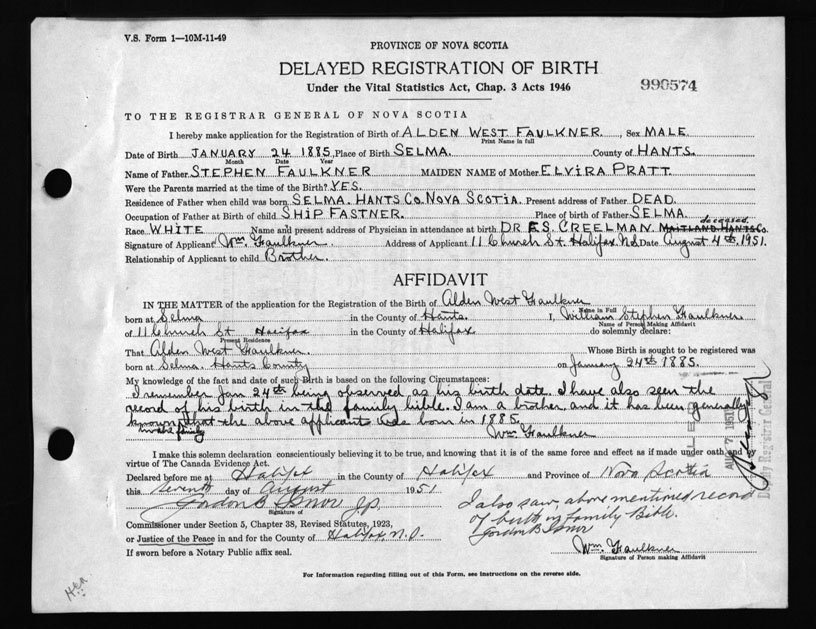 V.S. Form 1—10M-11-49
PROVINCE OF NOVA SCOTIA
DELAYED REGISTRATION OF BIRTH
990574
Under the Vital Statistics Act, Chap. 3 Acts 1946
TO THE REGISTRAR GENERAL OF NOVA SCOTIA
I hereby make application for the Registration of Birth of ALDEN WEST FAULKNER, Sex MALE.
Print Name in full
Date of Birth JANUARY 24 1885, Place of Birth SELMA. County of HANTS.
Month Date Year
Name of Father STEPHEN FAULKNER MAIDEN NAME of Mother ELVIRA PRATT.
Were the Parents married at the time of the Birth? YES.
Residence of Father when child was born SELMA. HANTS CO. NOVA SCOTIA. Present address of Father DEAD.
Occupation of Father at Birth of child SHIP FASTNER. Place of birth of Father SELMA.
deceased.
Race WHITE Name and present address of Physician in attendance at birth DR. F.S. CREELMAN. MAITLAND. HANTS Co.
Signature of Applicant Wm. Faulkner. Address of Applicant 11 Church St. Halifax N.S Date August 4th, 1951.
Relationship of Applicant to child Brother.
AFFIDAVIT
IN THE MATTER of the application for the Registration of the Birth of Alden West Faulkner
Name in Full
born at Selma in the County of Hants. I, William Stephen Faulkner
Name of Person Making Affidavit
of 11 Church St Halifax in the County of Halifax do solemnly declare:
Present Residence
That Alden West Faulkner. Whose Birth is sought to be registered was
born at Selma. Hants County on January 24th 1885.
My knowledge of the fact and date of such Birth is based on the following Circumstances:
I remember Jan 24th being observed as his birth date. I have also seen the
record of his birth in the family bible. I am a brother and it has been generally
known that the above applicant was born in 1885.
in the family
Wm. Faulkner
FILED
AUG 7 1951
Deputy Registrar General
I make this solemn declaration conscientiously believing it to be true, and knowing that it is of the same force and effect as if made under oath and by
virtue of The Canada Evidence Act.
Declared before me at Halifax in the County of Halifax and Province of Nova Scotia
this seventh day of August 1951
Gordon B. J.P.
Signature of
I also saw, above mentioned record
of birth in family Bible.
Gordon B.
Commissioner under Section 5, Chapter 38, Revised Statutes, 1923,
or Justice of the Peace in and for the County of Halifax, N.S.
If sworn before a Notary Public affix seal.
Wm. Faulkner
Signature of Person making Affidavit
For Information regarding filling out of this Form, see instructions on the reverse side.